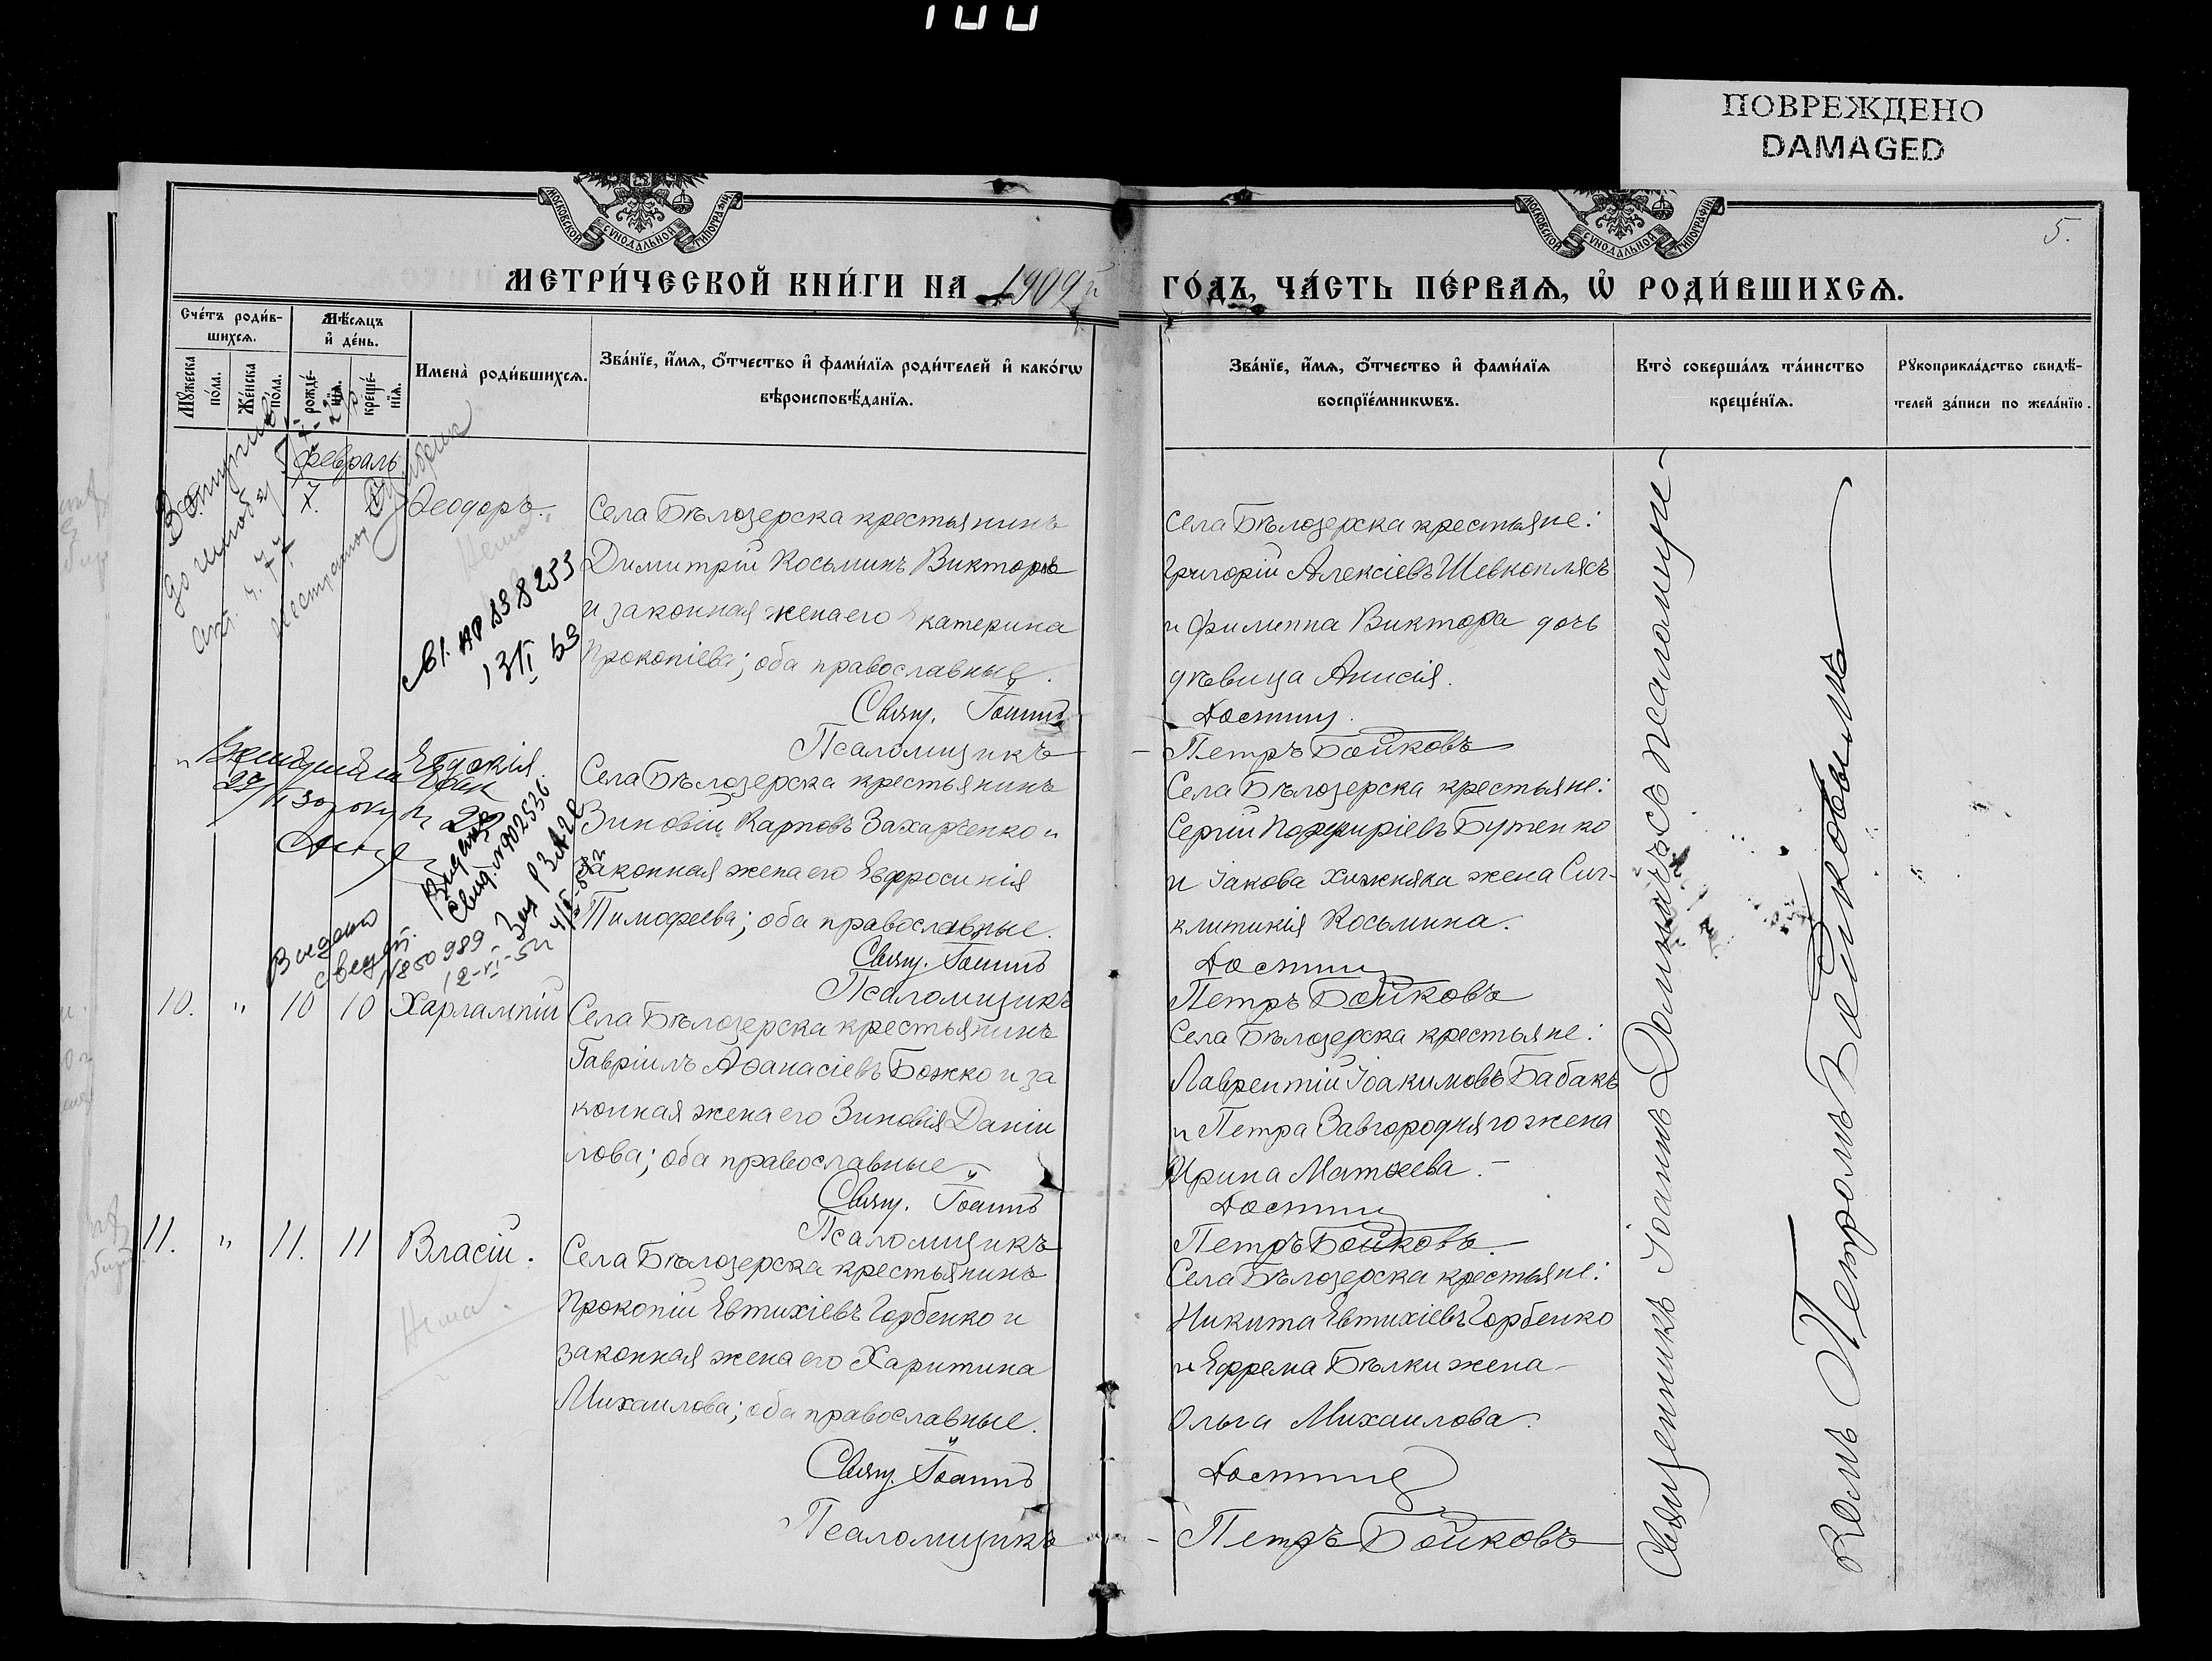 100
ПОВРЕЖДЕНО
DAMAGED
МОСКОВСКОЙ СѴНОДАЛЬНОЙ ТИПОГРАФІИ
МОСКОВСКОЙ СѴНОДАЛЬНОЙ ТИПОГРАФІИ
5.
МЕТРИ́ЧЕСКОЙ КНИ́ГИ НА 1909 й ГО́ДЪ, ЧА́СТЬ ПЕ́РВАѦ, Ѡ҆ РОДИ́ВШИХСѦ.
Сче́тъ роди́в-
шихсѧ.
Мꙋ́жеска
по́ла.
Же́нска
по́ла.
Мѣ́сѧцъ
и҆ де́нь.
рожде́-
нїѧ.
креще́-
нїѧ.
Имена̀ роди́вшихсѧ.
Зва́нїе, и҆́мѧ, ѻ҆́тчество и҆ фами́лїѧ роди́телей и҆ како́гѡ
вѣроисповѣ́данїѧ.
Зва́нїе, и҆́мѧ, ѻ҆́тчество и҆ фами́лїѧ
воспрїе́мникѡвъ.
Кто̀ соверша́лъ та́инство
креще́нїѧ.
Рꙋкоприкла́дство свидѣ́-
телей за́писи по жела́нїю.
Февраль
Ѳеодоръ.
Села Бѣлозерска крестьянинъ
Димитрій Косьминъ Викторъ
и законная жена его Екатерина
Прокопіева; оба православные.
Свящ. Іоаннъ
Псаломщикъ
Села Бѣлозерска крестьяне:
Григорій Алексіевъ Шевкоплясъ
и Филиппа Виктора дочь
дѣвица Анисія.
Петръ Бойковъ
898253
13/VI 69
Евдокія.
Села Бѣлозерска крестьянинъ
Зиновій Карповъ Захарченко и
законная жена его Евфросинія
Тимофеева; оба православные.
Свящ. Іоаннъ
Псаломщикъ
Села Бѣлозерска крестьяне:
Сергій Порфиріевъ Бутенко
и Іакова Хижняка жена Син-
клитикія Косьмина.
Петръ Бойковъ
Видано
свид.
N850989
12-VI-52
10. " 10 10 Харлампій
Села Бѣлозерска крестьянинъ
Гавріилъ Аѳанасіевъ Божко и за
конная жена его Зиновія Даніи
лова; оба православные.
Свящ. Іоаннъ
Псаломщикъ
Села Бѣлозерска крестьяне:
Лаврентій Іоакимовъ Бабакъ
и Петра Завгородняго жена
Ирина Матѳеева.
Петръ Бойковъ.
11. " 11. 11 Власій.
Нема.
Села Бѣлозерска крестьянинъ
Прокопій Евтихіевъ Горбенко и
законная жена его Харитина
Михаилова; оба православные.
Свящ. Іоаннъ
Псаломщикъ
Села Бѣлозерска крестьяне:
Никита Евтихіевъ Горбенко
и Ефрема Бѣлки жена
Ольга Михаилова.
Петръ Бойковъ
Священникъ Іоаннъ съ псаломщи-
комъ Петромъ Бойковымъ